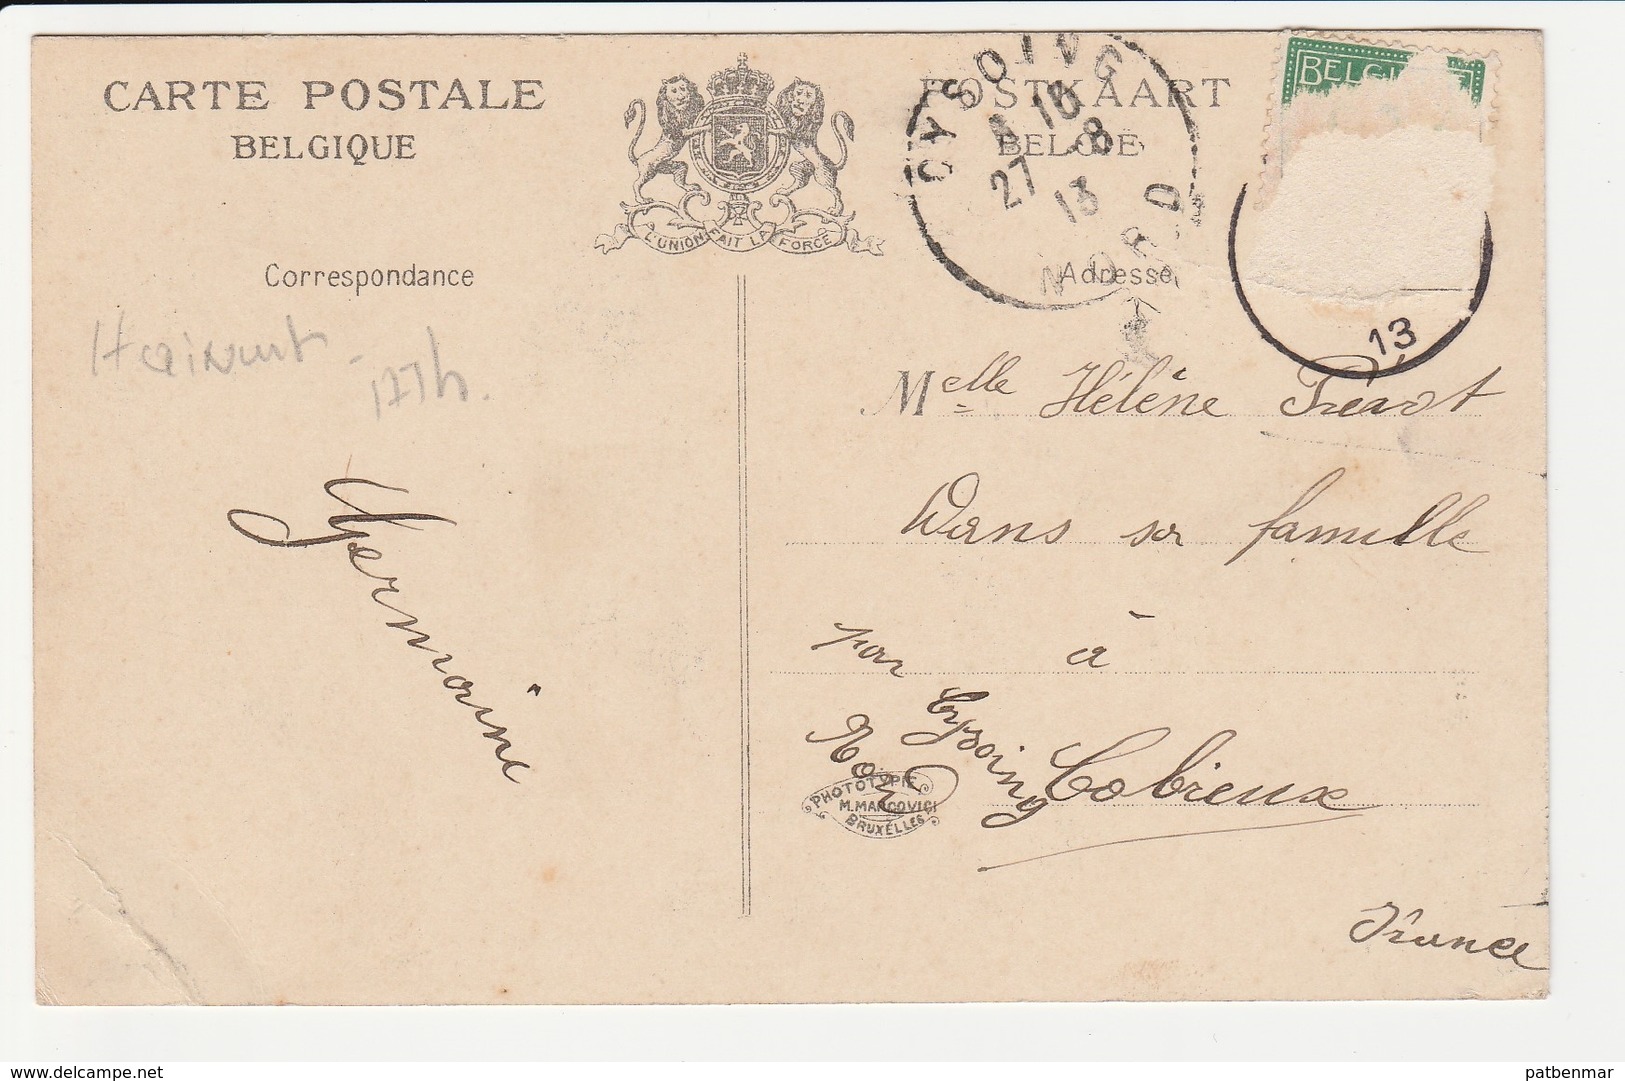 CARTE POSTALE
BELGIQUE
POSTKAART
BELGIË
L'UNION FAIT LA FORCE
CYSOING
16
27 -8
13
NORD
BELGI
13
Correspondance
Adresse
Hainaut
Germaine
Melle Hélène
Dans sa famille
à
par Cysoing
Nord
Cobrieux
France
PHOTOTYPIE
M. MARCOVICI
BRUXELLES
patbenmar